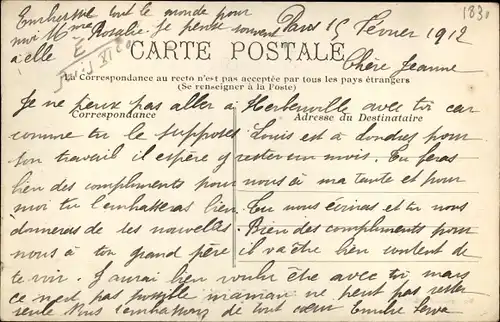 Embrasse tout le monde pour
moi Mme Rosalie Je pense souvent
à elle
Paris 15 Février 1912
1830
CARTE POSTALE
Chère Jeanne
La Correspondance au recto n'est pas acceptée par tous les pays étrangers
(Se renseigner à la Poste)
Correspondance
Adresse du Destinataire
Je ne peux pas aller à avec toi car
comme tu le supposes Louis est à Londres pour
son travail il espère y rester un mois. Tu feras
bien des compliments pour nous à ma tante et pour
moi tu l'embrasseras bien. Tu nous écriras et tu nous
donneras de tes nouvelles. Bien des compliments pour
nous à ton grand père il va être bien content de
te voir. J'aurai bien voulu être avec toi mais
ce n'est pas possible maman ne peut pas rester
seule Nous t'embrassons de tout cœur